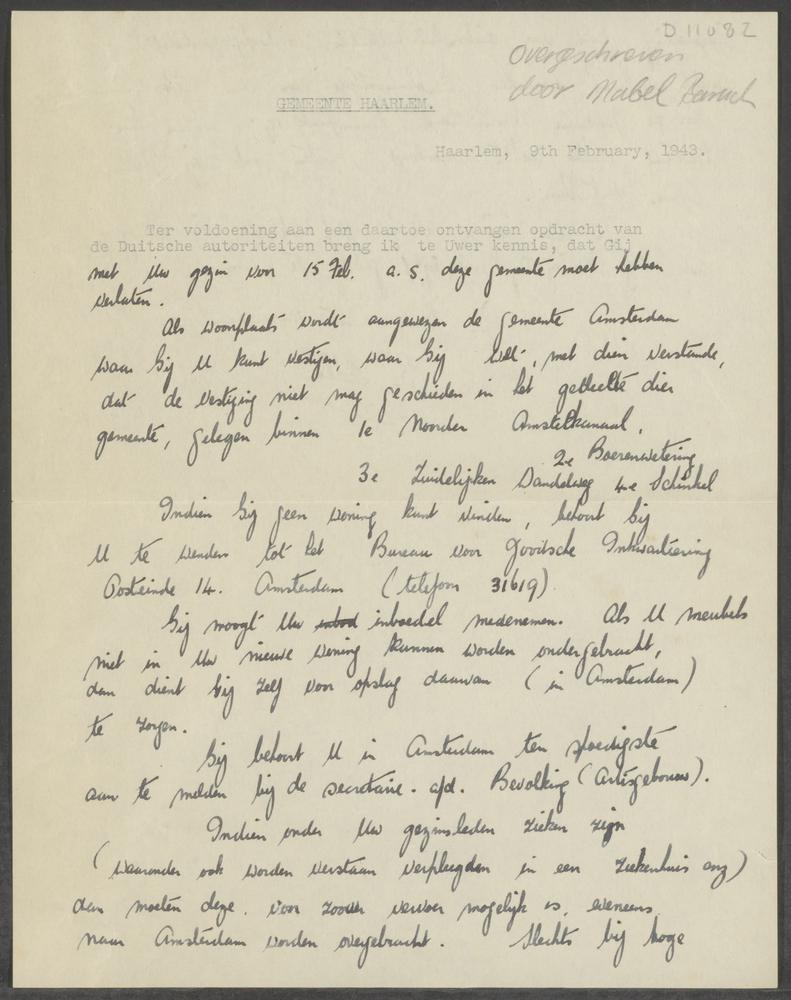 D 11082
Overgeschreven
door Mabel
GEMEENTE HAARLEM.
Haarlem, 9th February, 1943.
Ter voldoening aan een daartoe ontvangen opdracht van
de Duitsche autoriteiten breng ik te Uwer kennis, dat Gij
met Uw gezin voor 15 Feb. a. s. deze gemeente moet hebben
verlaten.
Als woonplaats wordt aangewezen de gemeente Amsterdam
waar Gij U kunt vestigen, waar Gij wilt, met dien verstande,
dat de vestiging niet mag geschieden in het gedeelte dier
gemeente, gelegen binnen 1e Noorder Amstelkanaal,
2e Boerenwetering
3e Zuidelijken Wandelweg 4e Schinkel
Indien Gij geen woning kunt vinden, behoort Gij
U te wenden tot het Bureau voor Joodsche Inkwartiering
Oosteinde 14. Amsterdam (telefoon 31619)
Gij moogt Uw inboedel medenemen. Als U meubels
niet in Uw nieuwe woning kunnen worden ondergebracht,
dan dient Gij zelf voor opslag daarvan (in Amsterdam)
te zorgen.
Gij behoort U in Amsterdam ten spoedigste
aan te melden bij de secretarie. afd. Bevolking (Artisgebouw).
Indien onder Uw gezinsleden zieken zijn
(waaronder ook worden verstaan verpleegden in een ziekenhuis enz)
dan moeten deze. voor zoover vervoer mogelijk is, eveneens
naar Amsterdam worden overgebracht. Slechts bij hoge